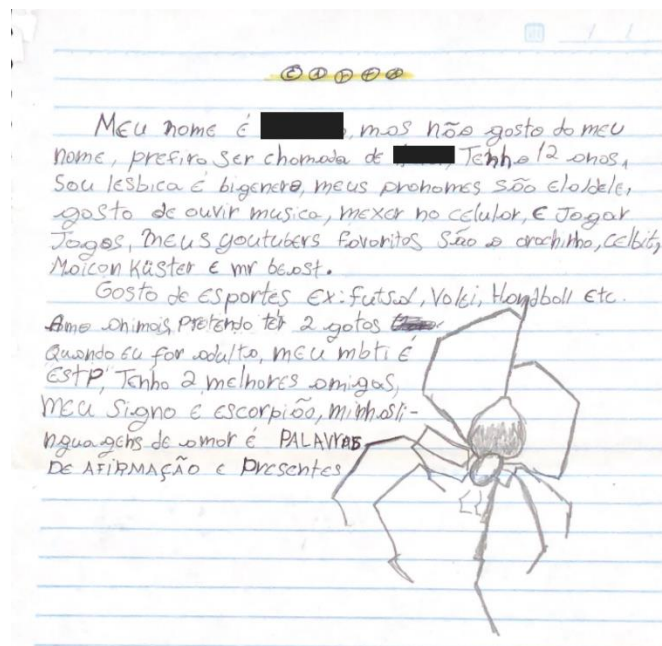 CARTA
Meu nome é, mas não gosto do meu
nome, prefiro ser chamada de, Tenho 12 anos,
Sou lesbica é bigenero, meus pronomes são ela/dele,
gosto de ouvir musica, mexer no celular, E Jogar
Jogos, meus youtubers favoritos são o orochinho, cellbit,
Maicon Küster e mr beast.
Gosto de esportes Ex: futsal, Volei, Handball etc.
Amo animais, Pretendo ter 2 gatos
Quando eu for adulto, meu mbti é
ESTP, Tenho 2 melhores amigas,
meu signo é escorpião, minhas li-
nguagens de amor é PALAVRAS
DE AFIRMAÇÃO e Presentes